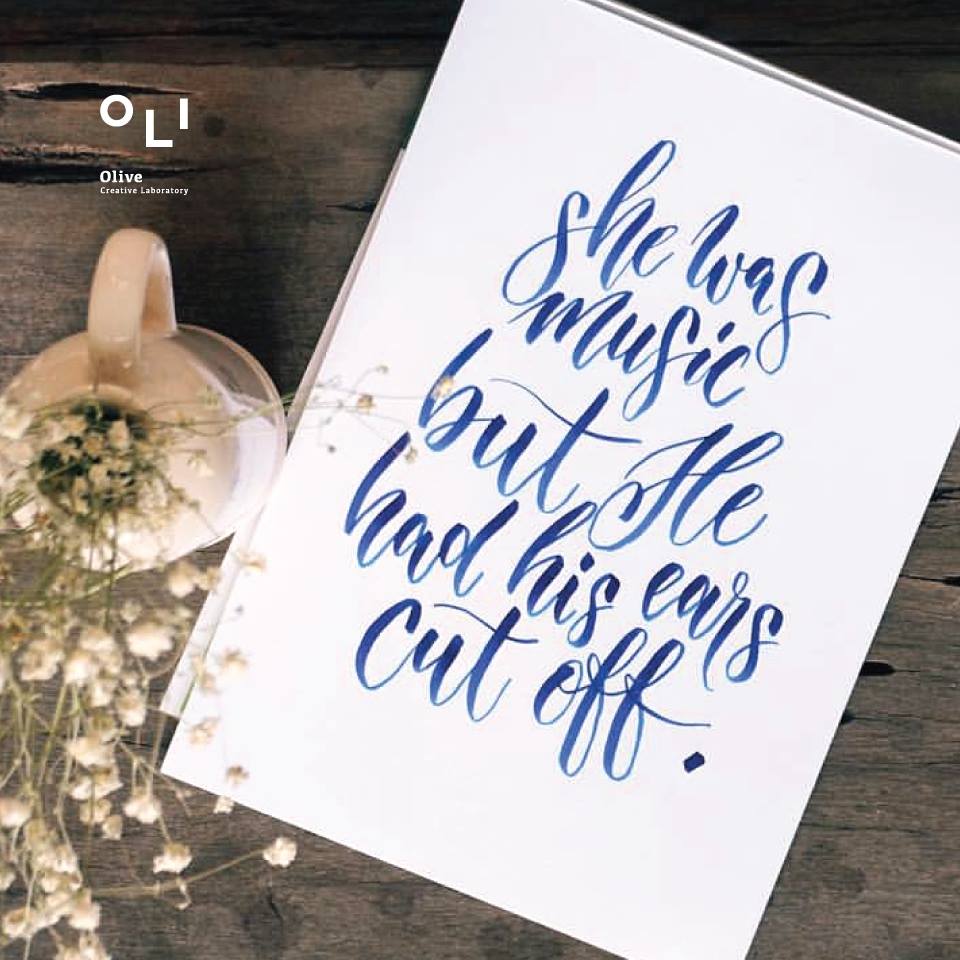 OLI
Olive
Creative Laboratory
she was
music
but He
had his ears
cut off.